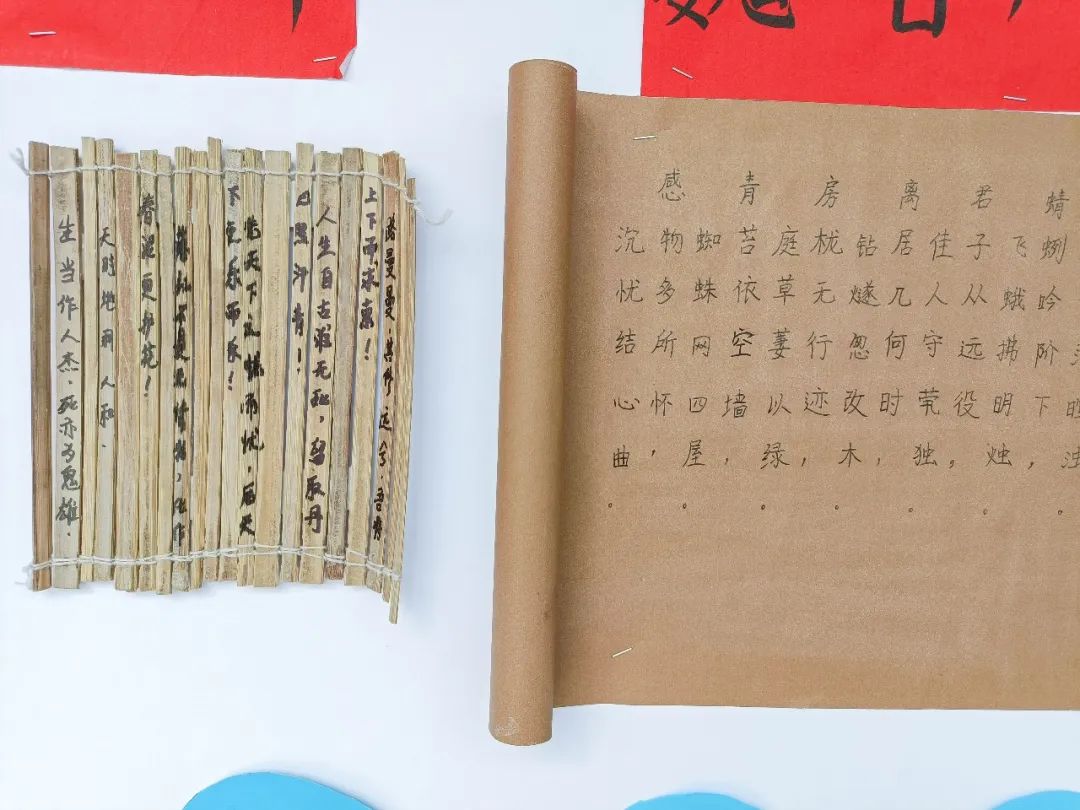 路曼曼其修远兮,吾将
上下而求索!
人生自古谁无死,留取丹
心照汗青!
先天下之忧而忧,后天
下之乐而乐!
落红不是无情物,化作
春泥更护花!
天时地利人和.
生当作人杰.死亦为鬼雄.
蜻蛚吟阶下,
飞蛾拂明烛。
君子从远役,
佳人守茕独。
离居几何时,
钻燧忽改木。
房栊无行迹,
庭草萋以绿。
青苔依空墙,
蜘蛛网四屋。
感物多所怀,
沉忧结心曲。